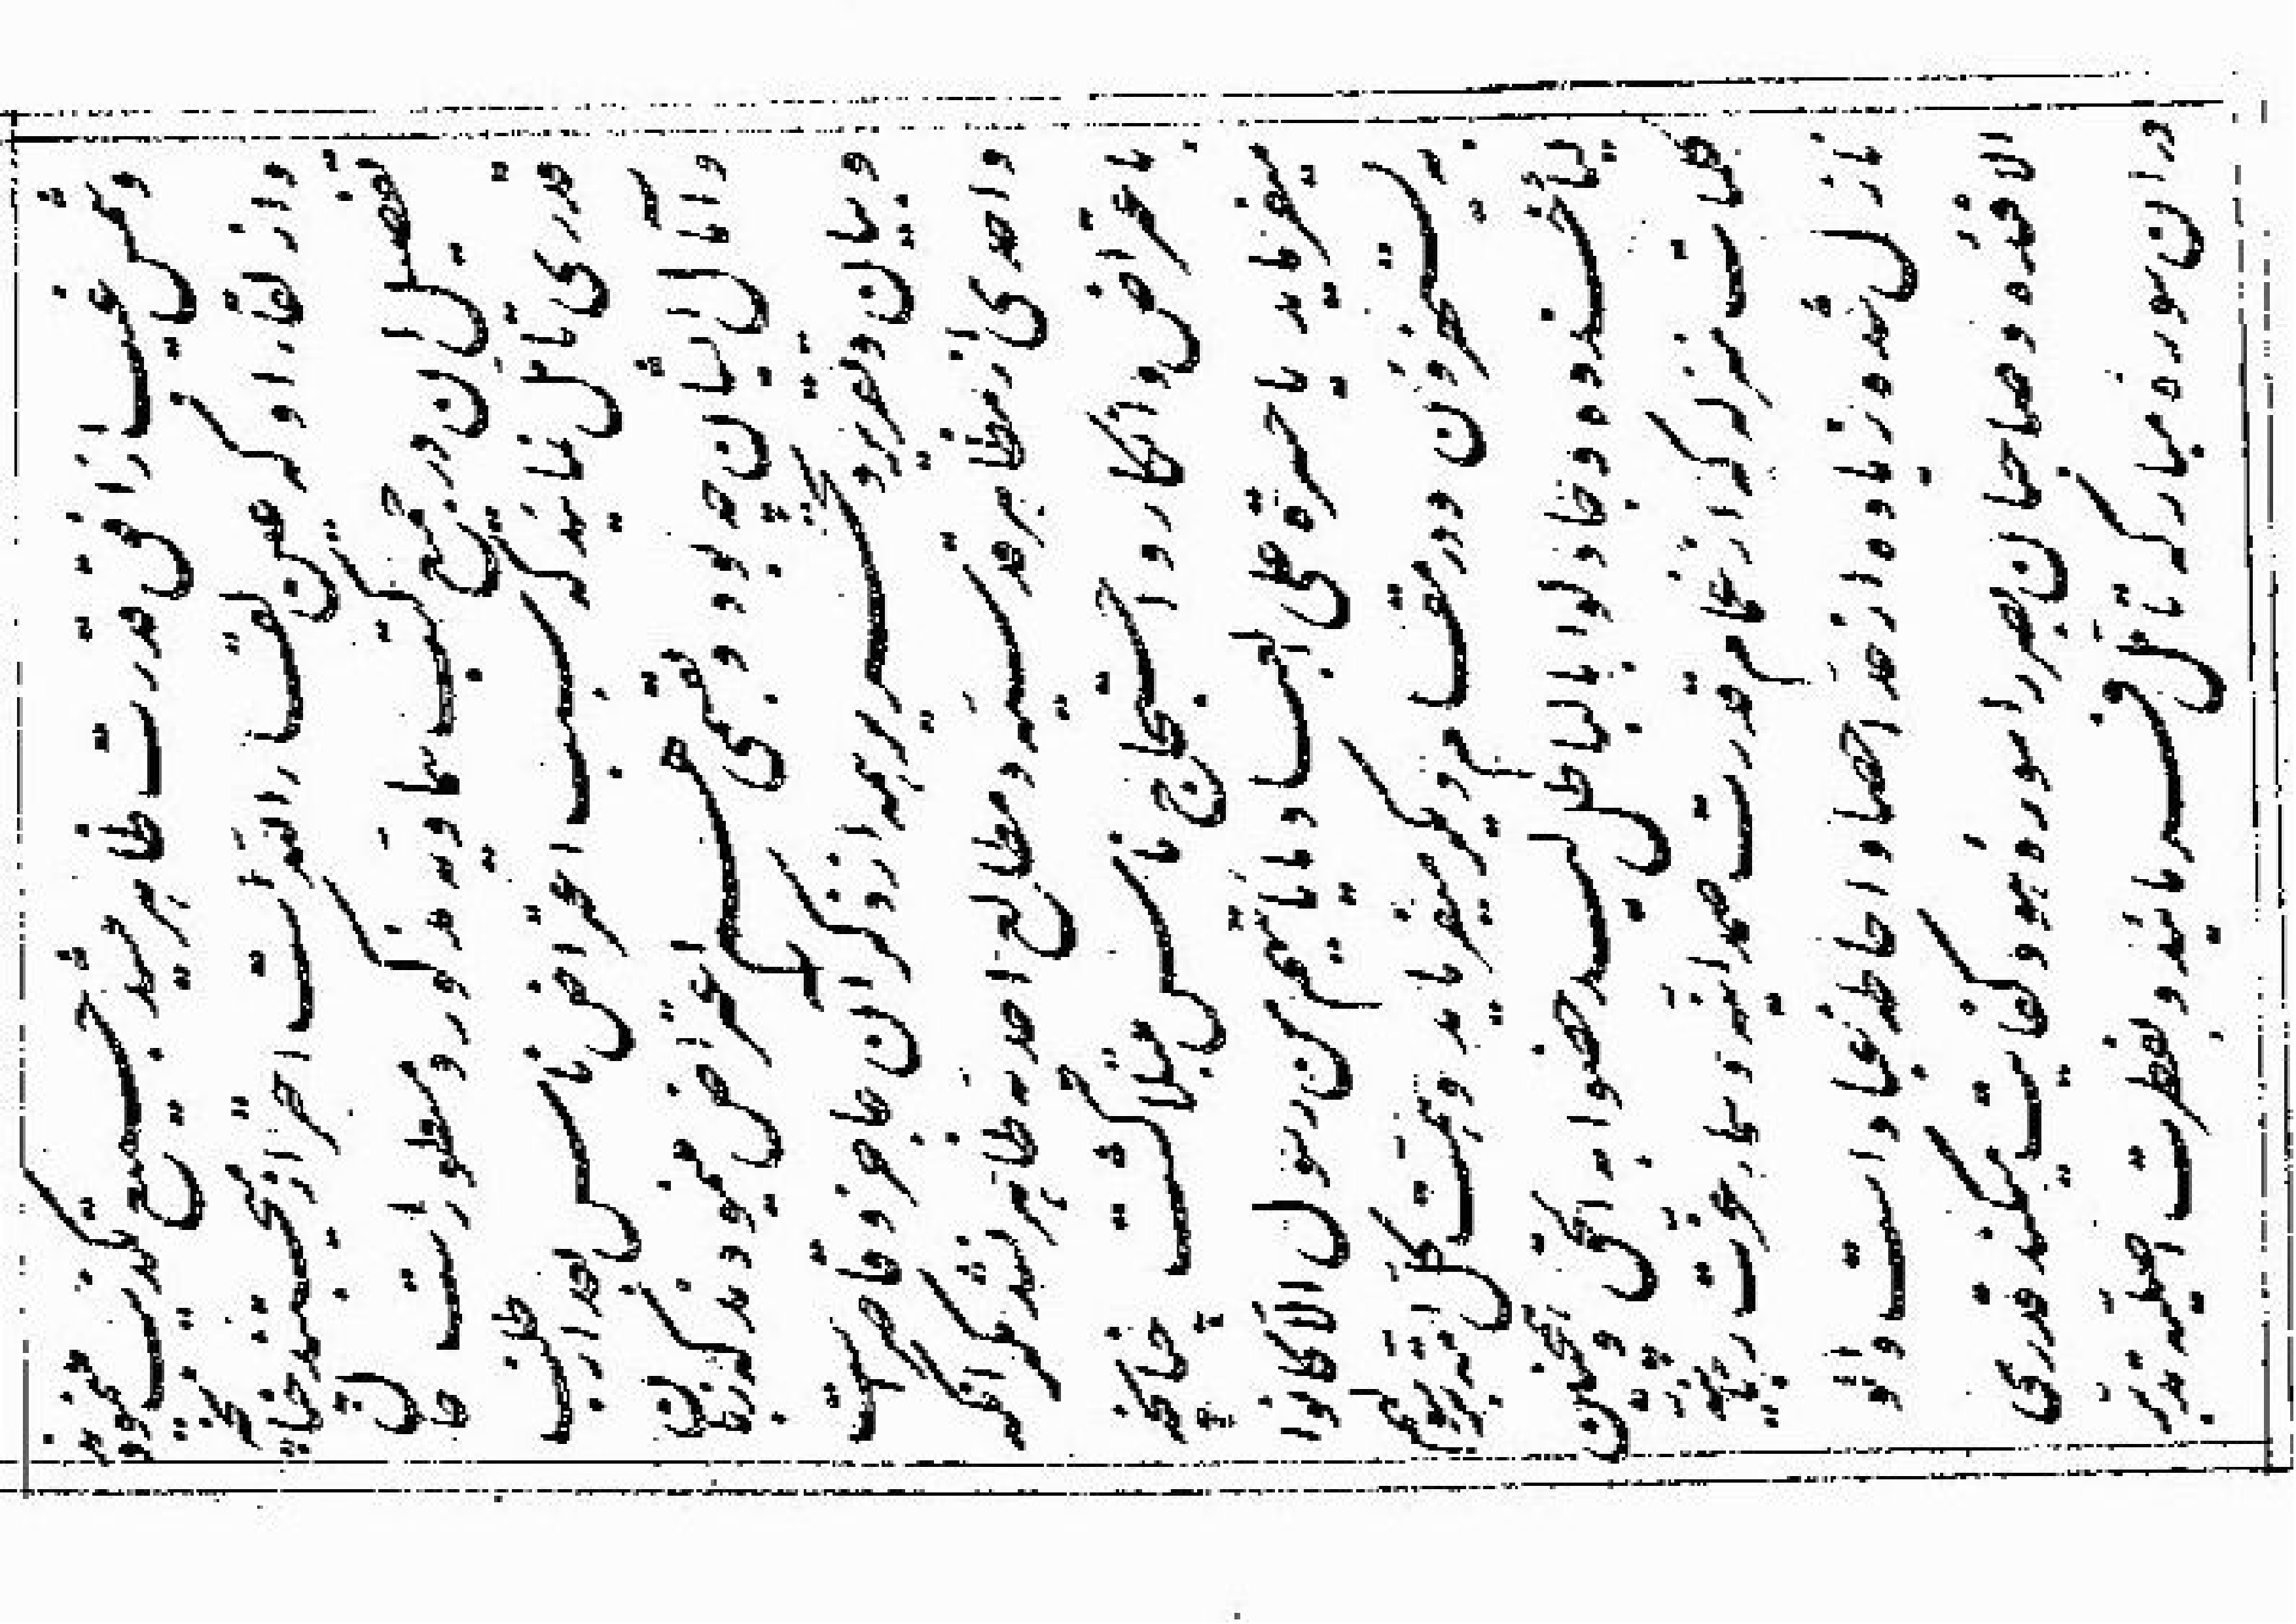 و شمس غیب از افق قدرت ظاهر میشد جمیع تکذیب مینمودند
و از لقاء او که عین لقاء الله است احتراز میجستند چنانچه
تفصیل ان در جمیع کتب سماویه مذکور و مسطور است حال
قدری تامل نمائید که سبب اعتراض ناس بعد از طلب
و امال ایشان چه بود و بقسمی هم اعتراض مینمودند که زبان
و بیان و تقریر و تحریر همه از ذکر ان عاجز و قاصر است
و احدی از مظاهر قدسیه و مطالع احدیه ظاهر نشد مگر انکه
باعتراض و انکار و احتجاج ناس مبتلا گشت چنانچه
میفرماید یا حسرة علی العباد ما یاتیهم من رسول الا کانوا
به یستهزؤن و در مقام دیگر میفرماید و همت کل امة برسولهم
لیاخذوه و جادلوا بالباطل لیدحضوا به الحق و همچنین
کلمات منزله که از غمام قدرت صمدانیه و سماء عزت ربانیه
نازل شده زیاده از حد احصا و احاطه عباد است و اولو
الافئده و صاحبان بصر را سوره هود کفایت میکند قدری
در ان سوره مبارکه تامل فرمائید و بفطرت اصلیه تدبر